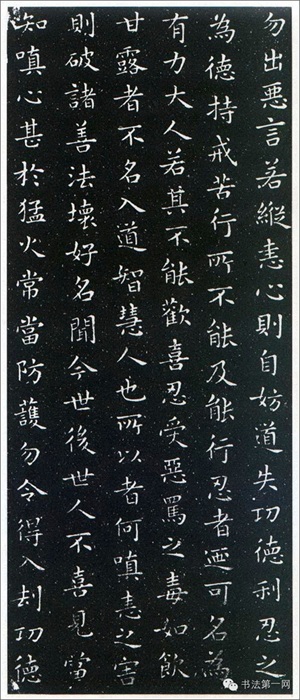 勿出悪言若縱恚心則自妨道失功德利忍之
為德持戒苦行所不能及能行忍者迺可名為
有力大人若其不能歡喜忍受惡罵之毒如飲
甘露者不名入道智慧人也所以者何嗔恚之害
則破諸善法壞好名聞今世後世人不喜見當
知嗔心甚於猛火常當防護勿令得入刦功德
书法第一网